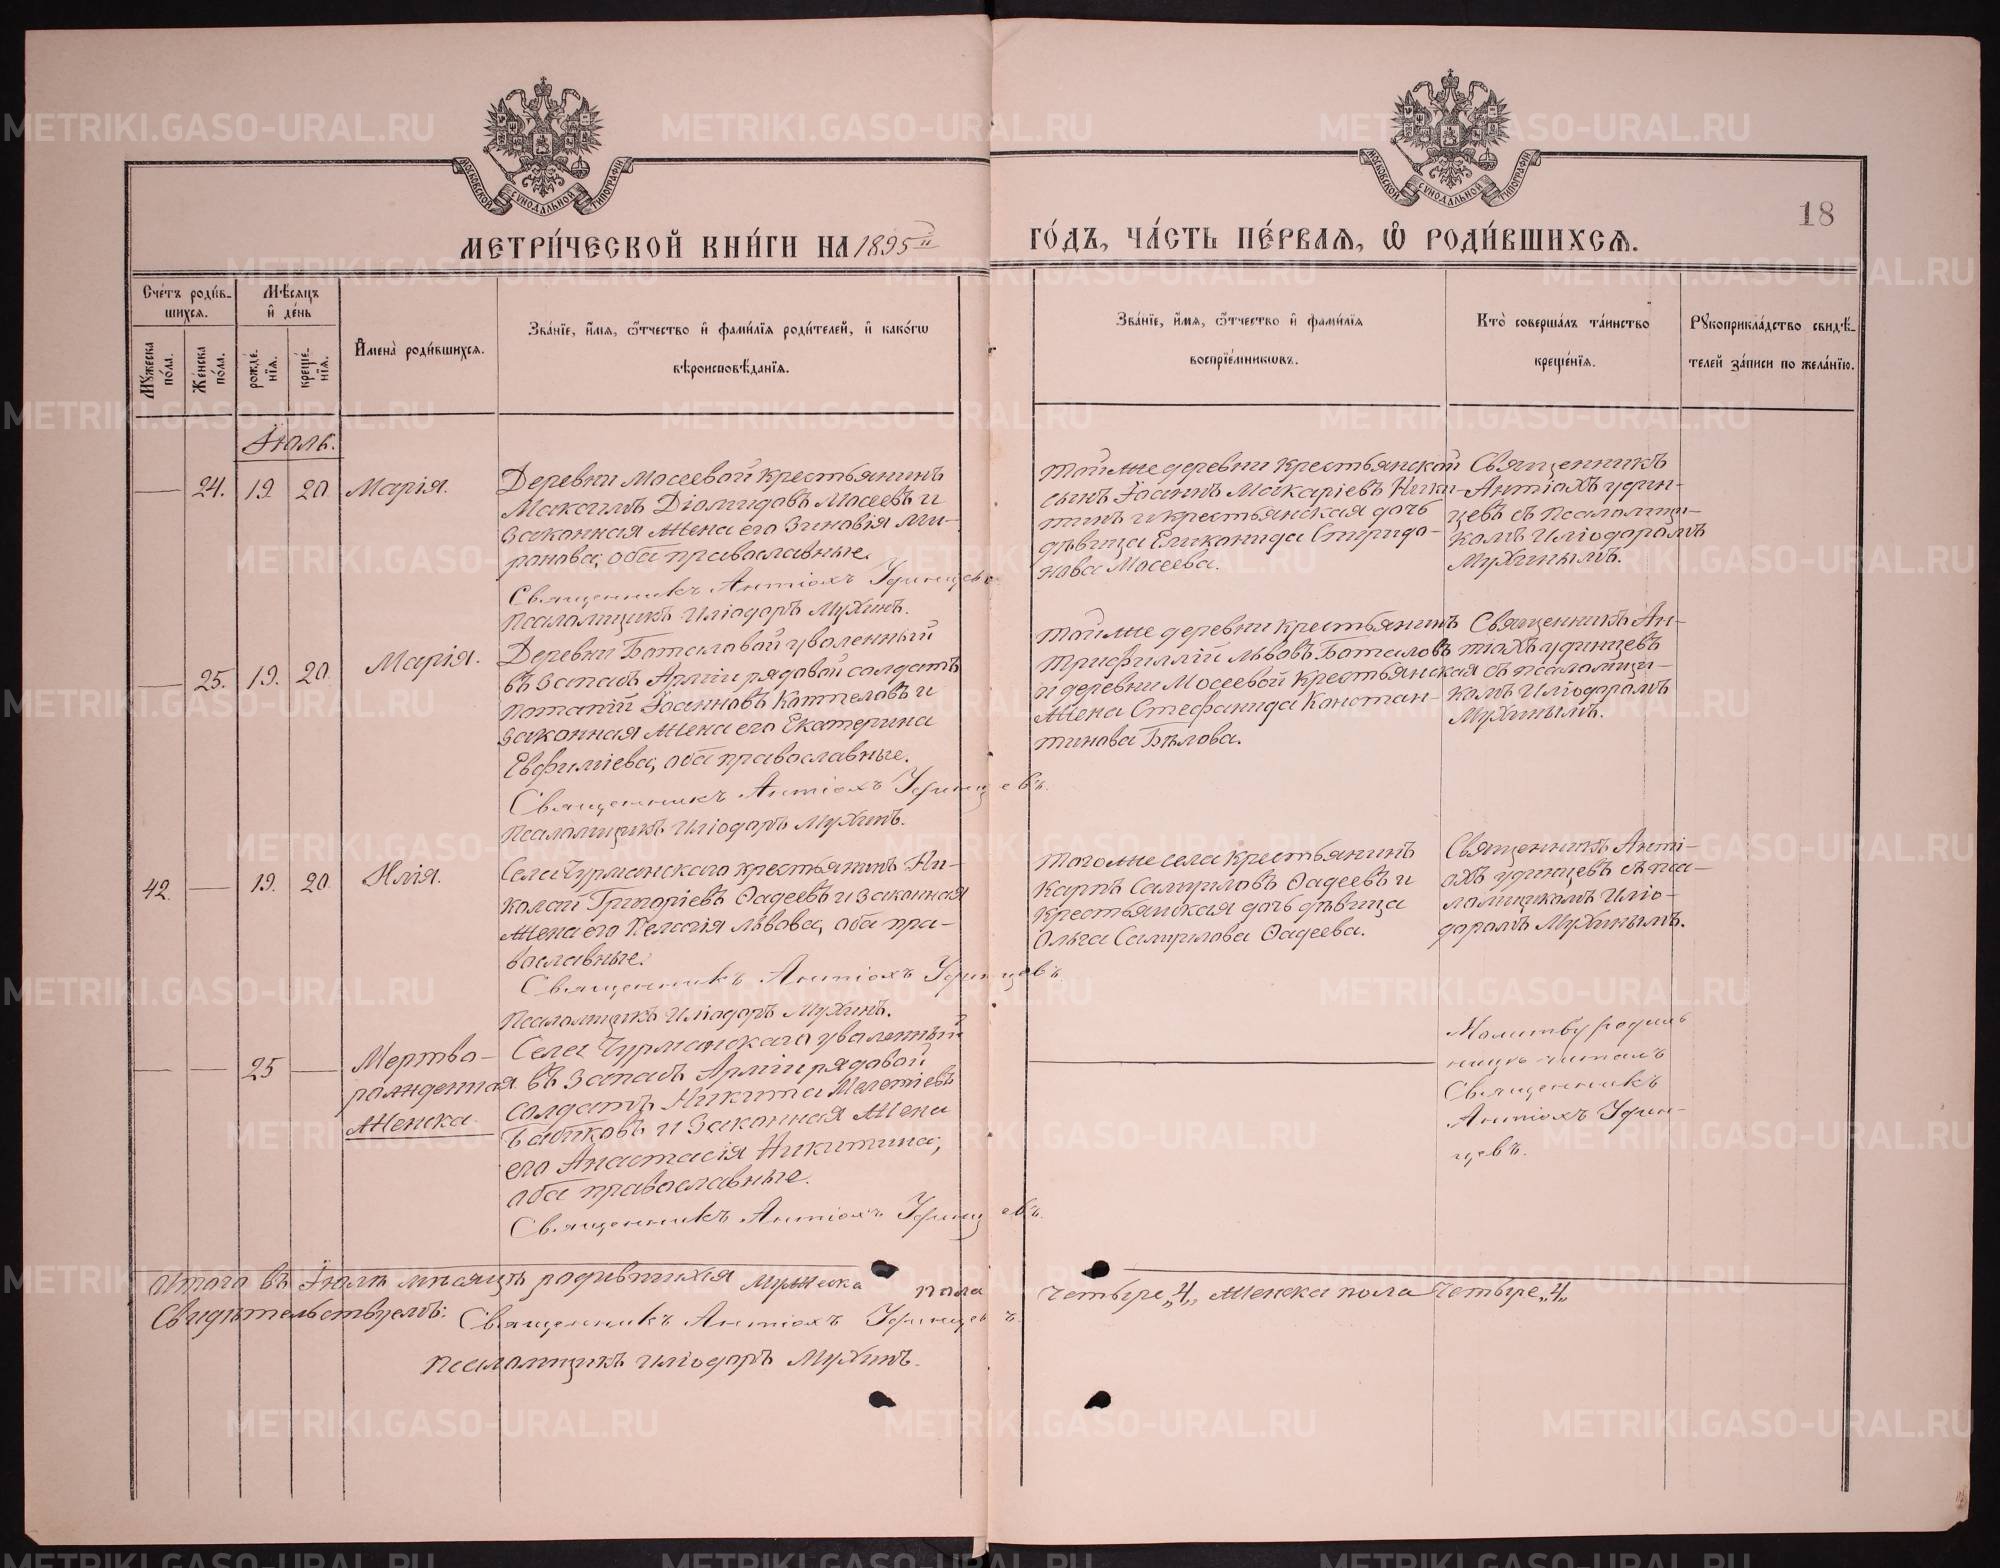 МОСКОВСКОЙ СѴНОДАЛЬНОЙ ТИПОГРАФІИ
МОСКОВСКОЙ СѴНОДАЛЬНОЙ ТИПОГРАФІИ
18
МЕТРИ́ЧЕСКОЙ КНИ́ГИ НА 1895й
ГО́ДЪ, ЧА́СТЬ ПЕ́РВАѦ, Ѡ҆ РОДИ́ВШИХСѦ.
Сче́тъ роди́в-
шихсѧ.
Мѣ́сѧцъ
и҆ де́нь
Мꙋ́жеска по́ла.
Же́нска по́ла.
рожде́-
нїѧ.
креще́-
нїѧ.
И҆мена̀ роди́вшихсѧ.
Зва́нїе, и҆́мѧ, ѻ҆́тчество и҆ фами́лїѧ роди́телей, и҆ како́гѡ
вѣроисповѣ́данїѧ.
Зва́нїе, и҆́мѧ, ѻ҆́тчество и҆ фами́лїѧ
воспрїе́мникѡвъ.
Кто̀ соверша́лъ та́инство
креще́нїѧ.
Рꙋкоприкла́дство свидѣ́-
телей за́писи по жела́нїю.
Іюль.
— 24. 19. 20 Марія.
Деревни Мосеевой крестьянинъ
Максимъ Діомидовъ Мосеевъ и
законная жена его Зиновія Ми-
ронова, оба православные.
Священникъ Антіохъ Удинцевъ
Псаломщикъ Иліодоръ Мухинъ.
Тойже деревни крестьянской
сынъ Іоаннъ Макаріевъ Ники-
тинъ и крестьянская дочь
дѣвица Еликанида Спиридо-
нова Мосеева.
Священникъ
Антіохъ Удин-
цевъ съ псаломщи-
комъ Иліодоромъ
Мухинымъ.
— 25. 19. 20 Марія.
Деревни Боталовой уволенный
въ запасъ Арміи рядовой солдатъ
Потапій Іоанновъ Коптеловъ и
законная жена его Екатерина
Евфиміева, оба православные.
Священникъ Антіохъ Удинцевъ.
Псаломщикъ Иліодоръ Мухинъ.
Тойже деревни крестьянинъ
Трифиллій Львовъ Боталовъ
и деревни Мосеевой крестьянская
жена Стефанида Констан-
тинова Бѣлова.
Священникъ Ан-
тіохъ Удинцевъ
съ псаломщи-
комъ Иліодоромъ
Мухинымъ.
42. — 19. 20. Илія.
Села Чурманскаго крестьянинъ Ни-
колай Григоріевъ Фадеевъ и законная
жена его Пелагія Львова, оба пра-
вославные.
Священникъ Антіохъ Удинцевъ
Псаломщикъ Иліодоръ Мухинъ.
Тогоже села крестьянинъ
Карпъ Самуиловъ Фадеевъ и
крестьянская дочь дѣвица
Ольга Самуилова Фадеева.
Священникъ Анті-
охъ Удинцевъ съ пса-
ломщикомъ Иліо-
доромъ Мухинымъ.
— — 25 — Мертво-
рожденная
женска
Села Чурманскаго уволенный
въ запасъ Арміи рядовой
солдатъ Никита Мелетіевъ
Бабиковъ и законная жена
его Анастасія Никитина,
оба православные.
Священникъ Антіохъ Удинцевъ.
Молитву родиль
ницѣ читалъ
Священникъ
Антіохъ Удин-
цевъ.
Итого въ Іюлѣ мѣсяцѣ родившихся мужеска пола четыре „4„ женска пола четыре „4„
Свидѣтельствуемъ: Священникъ Антіохъ Удинцевъ.
Псаломщикъ Иліодоръ Мухинъ.
METRIKI.GASO-URAL.RU